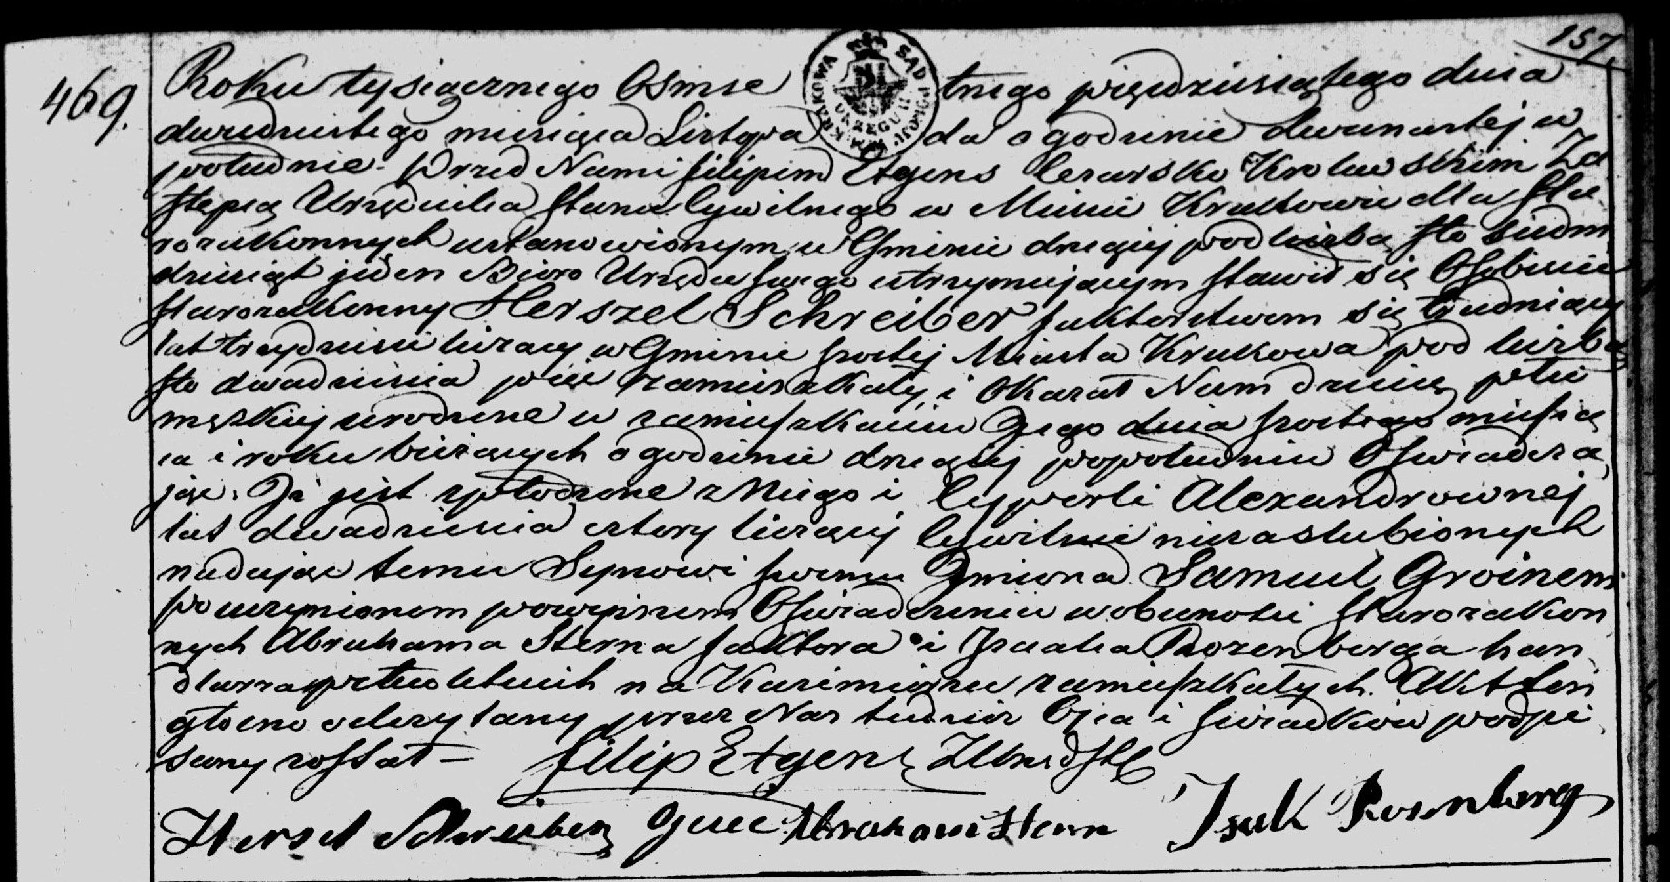 157
469.
Roku tysiącznego Osmse tnego pięćdziesiątego dnia
dwudziestego miesiąca Listopa da o godzinie dwunastej w
południe. Przed Nami Filipem Etgens Cesarsko Krolewskim Za
stępcą Urzędnika Stanu Cywilnego w Mieście Krakowie dla Sta
rozakonnych ustanowionym w Gminie drugiej pod liczbą sto siedm
dziesiąt jeden Biuro Urzędu swego utrzymującym stawił się Osobiście
Starozakonny Herszel Schreiber faktorstwem się trudniący
lat trzydzieści liczący w Gminie szostej Miasta Krakowa pod liczbą
sto dwadzieścia pięć zamieszkały, i Okazał Nam dziecię płci
męzkiej urodzone w zamieszkaniu Jego dnia szostego miesią
ca i roku bieżących o godzinie drugiej popołudniu Oświadcza
jąc, Iż jest spłodzone z Niego i Cyperli Alexandrownej
lat dwadzieścia cztery liczącej Cywilnie niezaslubionych
nadając temu Synowi swemu Imiona Samuel Groinem
po uczynionem powyższem Oświadczeniu w obecności Starozakon
nych Abrahama Sterna faktora i Izaaka Rozenberga han
dlarza pełnoletnich na Kazimierzu zamieszkałych. Akt ten
głośno odczytany przez Nas tudzież Ojca i świadków podpi
sany został –
Filip Etgens
Hersch Schreiber Abraham Stern Isak Rosenberg
SĄD KRAKOWA